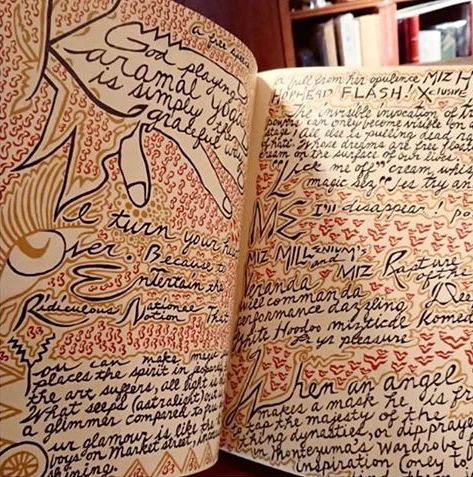 a free
God playing
aramal yoga
is simply the
grateful way
I turn your
Over. Because to
Entertain the
Ridiculous National
Notion This
You can make magic
places the spirit in jeopardy
the art suffers, all light is
What seeps (astralight) out is
a glimmer compared to
Our glamour is like the
boys on Market street, in
shining.
a full from her opulence MIZ H
HOPHEAD FLASH! Xclusive
The invisible invocation of
powers can only become visible on
stage! All else is pulling dead
of hate. Whose dreams are free float
cream on the surface of our lives
Lick me off" cream, whic
magic sez "Jes try an
ME I'll disappear!
MIZ MILLENIUM'S
and MIZ Rapture
of the
veranda
will commanda
performance dazzling
White Hoodoo mizticde Komed
Fryr pleasure
When an angel
makes a mask he is
tap the majesty of the
thing dynasties, or dip
in Montezuma's Wardrobe
inspiration (only to